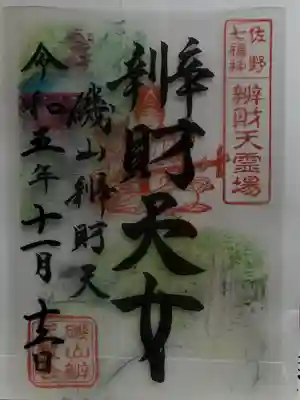 佐野
七福神
辨財天霊場
辨財天女
磯山辨財天
令和五年十一月十二日